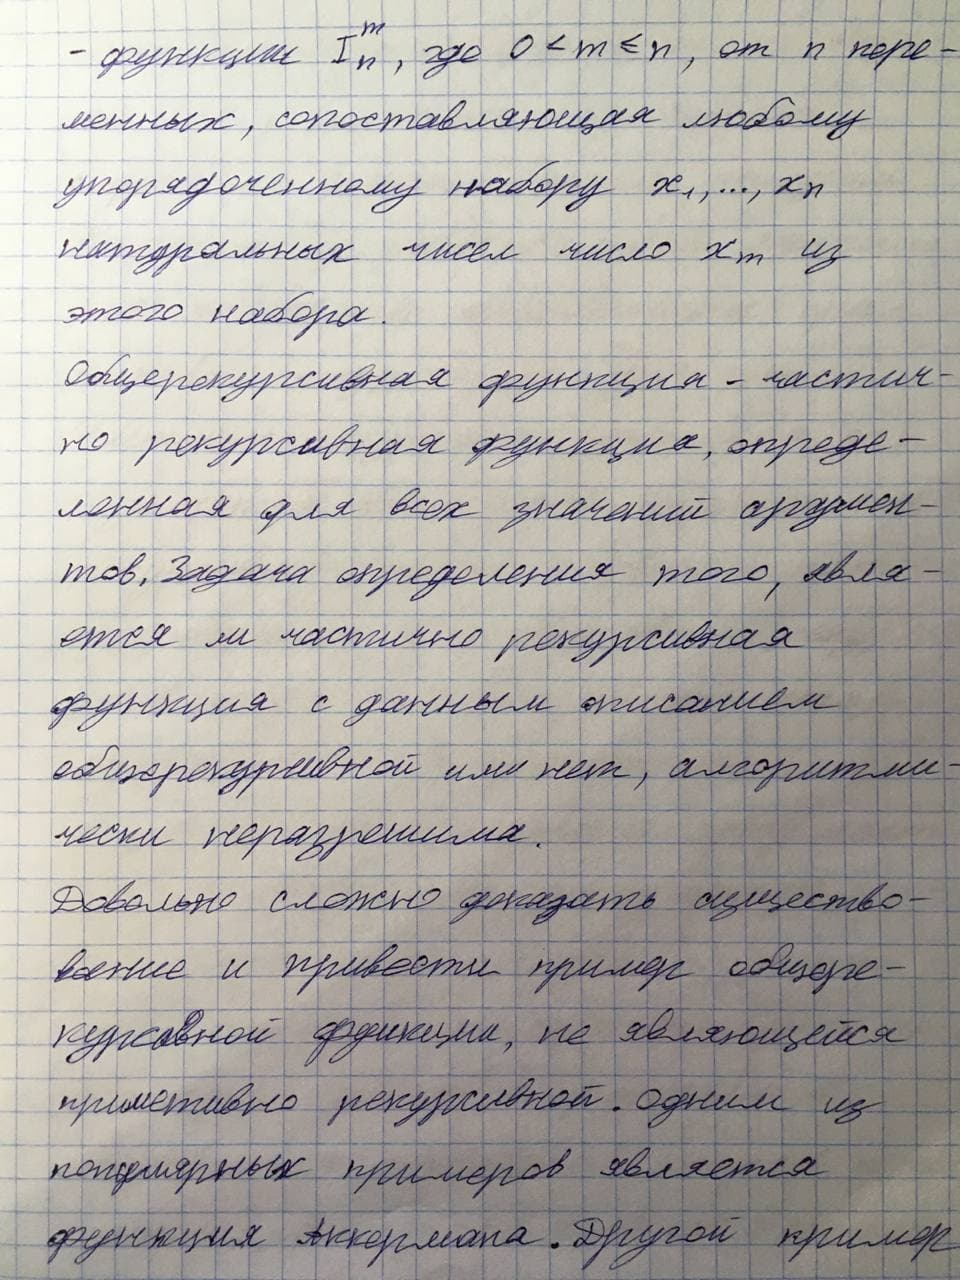 - функции I_n^m, где 0 < m ≤ n, от n пере-
менных, сопоставляющая любому
упорядоченному набору x₁, ..., xₙ
натуральных чисел число xₘ из
этого набора.
Общерекурсивная функция - частич-
но рекурсивная функция, опреде-
ленная для всех значений аргумен-
тов. Задача определения того, явля-
ется ли частично рекурсивная
функция с данным описанием
общерекурсивной или нет, алгоритми-
чески неразрешима.
Довольно сложно доказать существо-
вание и привести пример общере-
курсивной функции, не являющейся
приметивно рекурсивной. Одним из
популярных примеров является
функция Аккермана. Другой пример